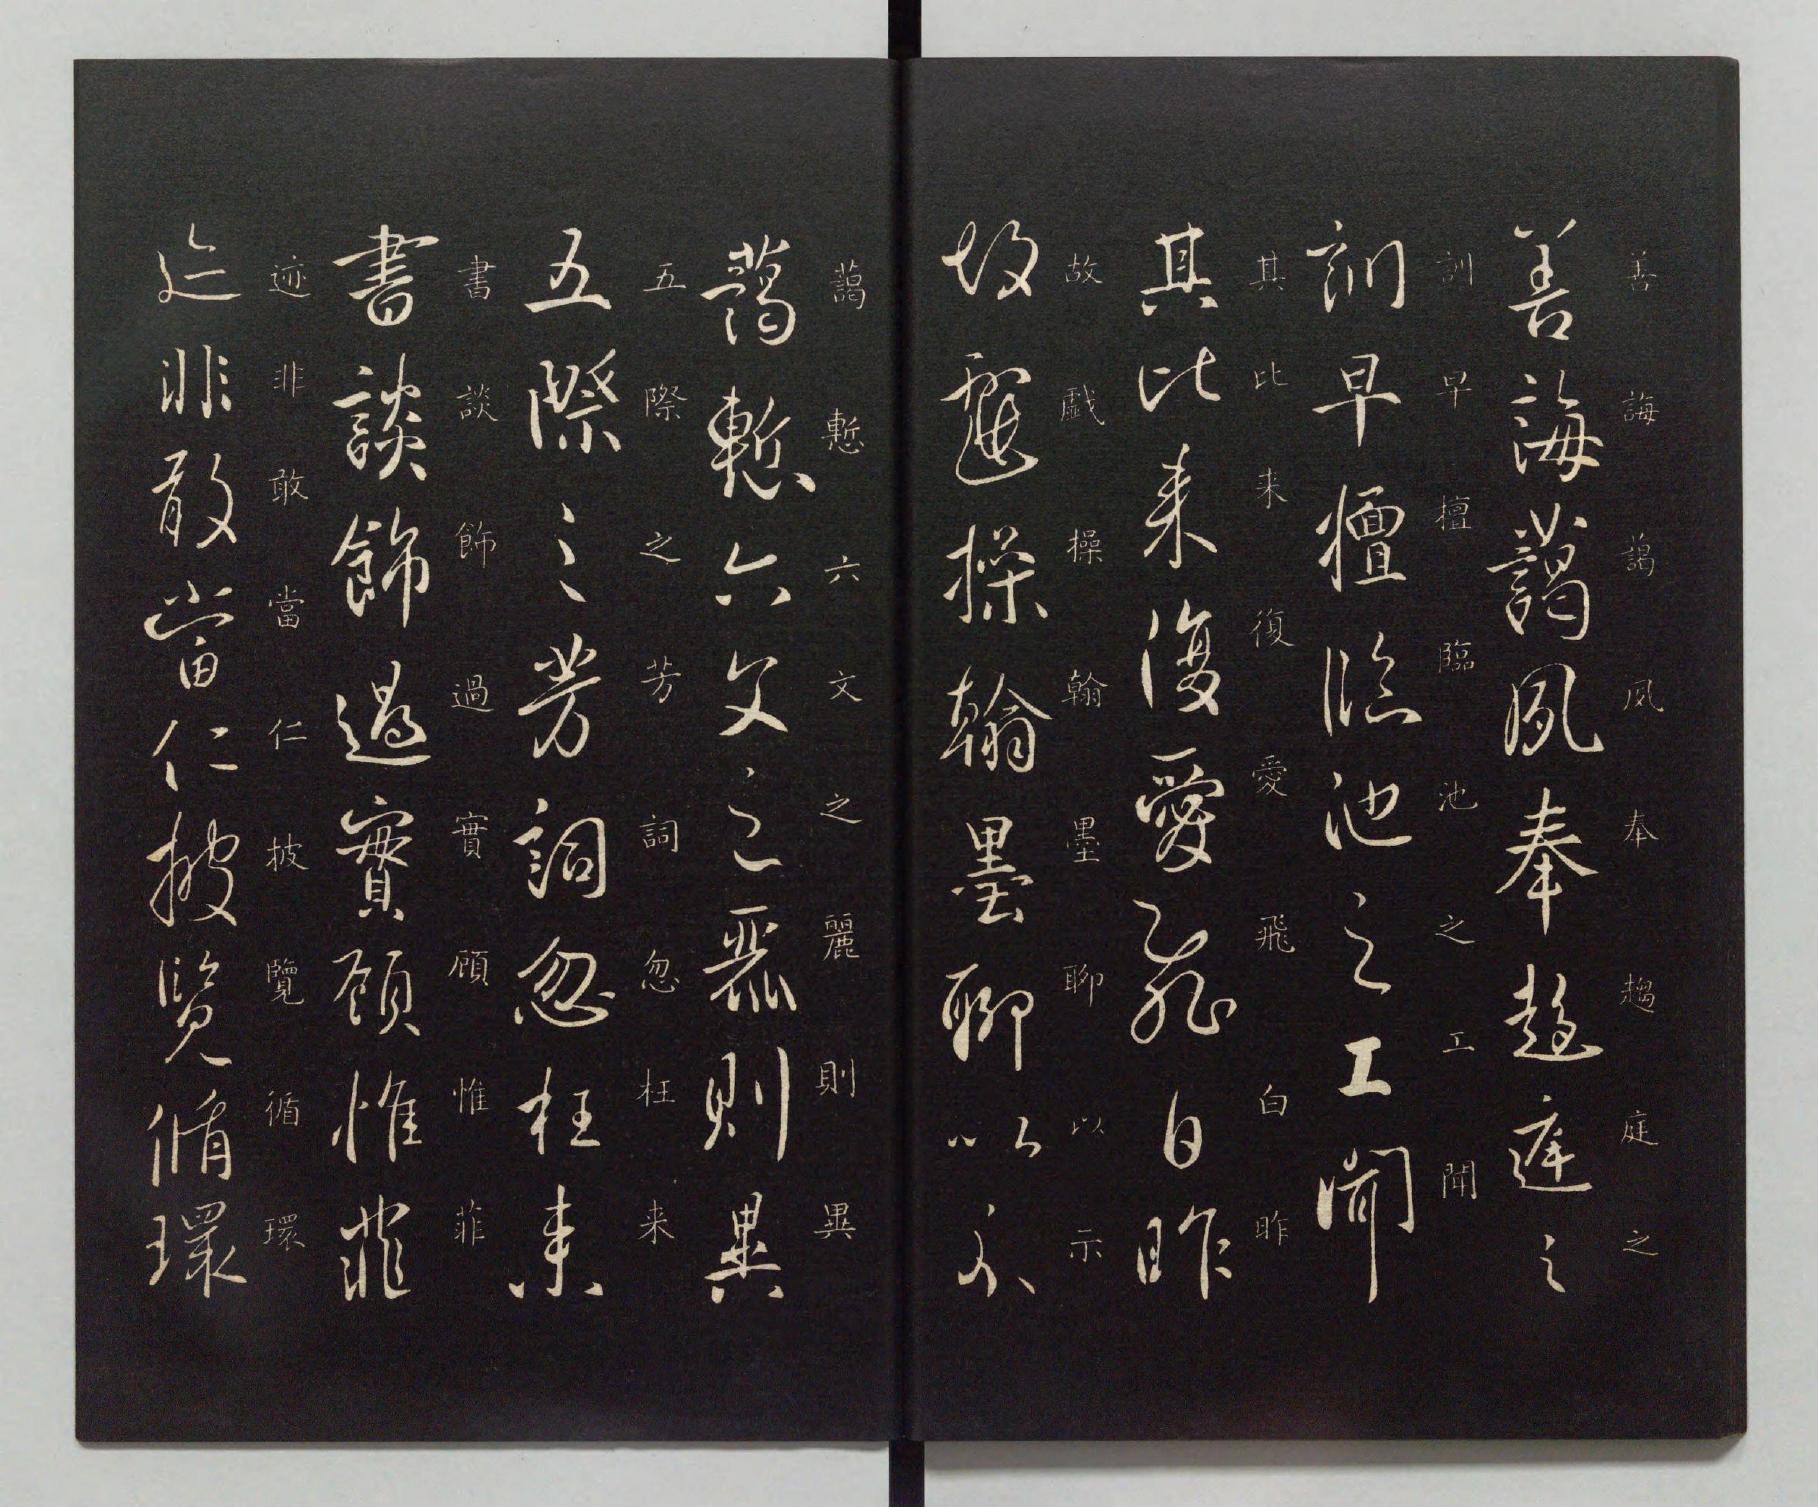 善誨藹夙奉趨庭之
善誨藹夙奉趨庭之
訓早擅臨池之工聞
訓早擅臨池之工聞
其比来復愛飛白昨
其比来復愛飛白昨
故戲操翰墨聊以示
故戲操翰墨聊以示
藹慙六文之麗則異
藹慙六文之麗則異
五際之芳詞忽枉来
五際之芳詞忽枉来
書談飾過實顧惟菲
書談飾過實顧惟菲
迹非敢當仁披覽循環
迹非敢當仁披覽循環